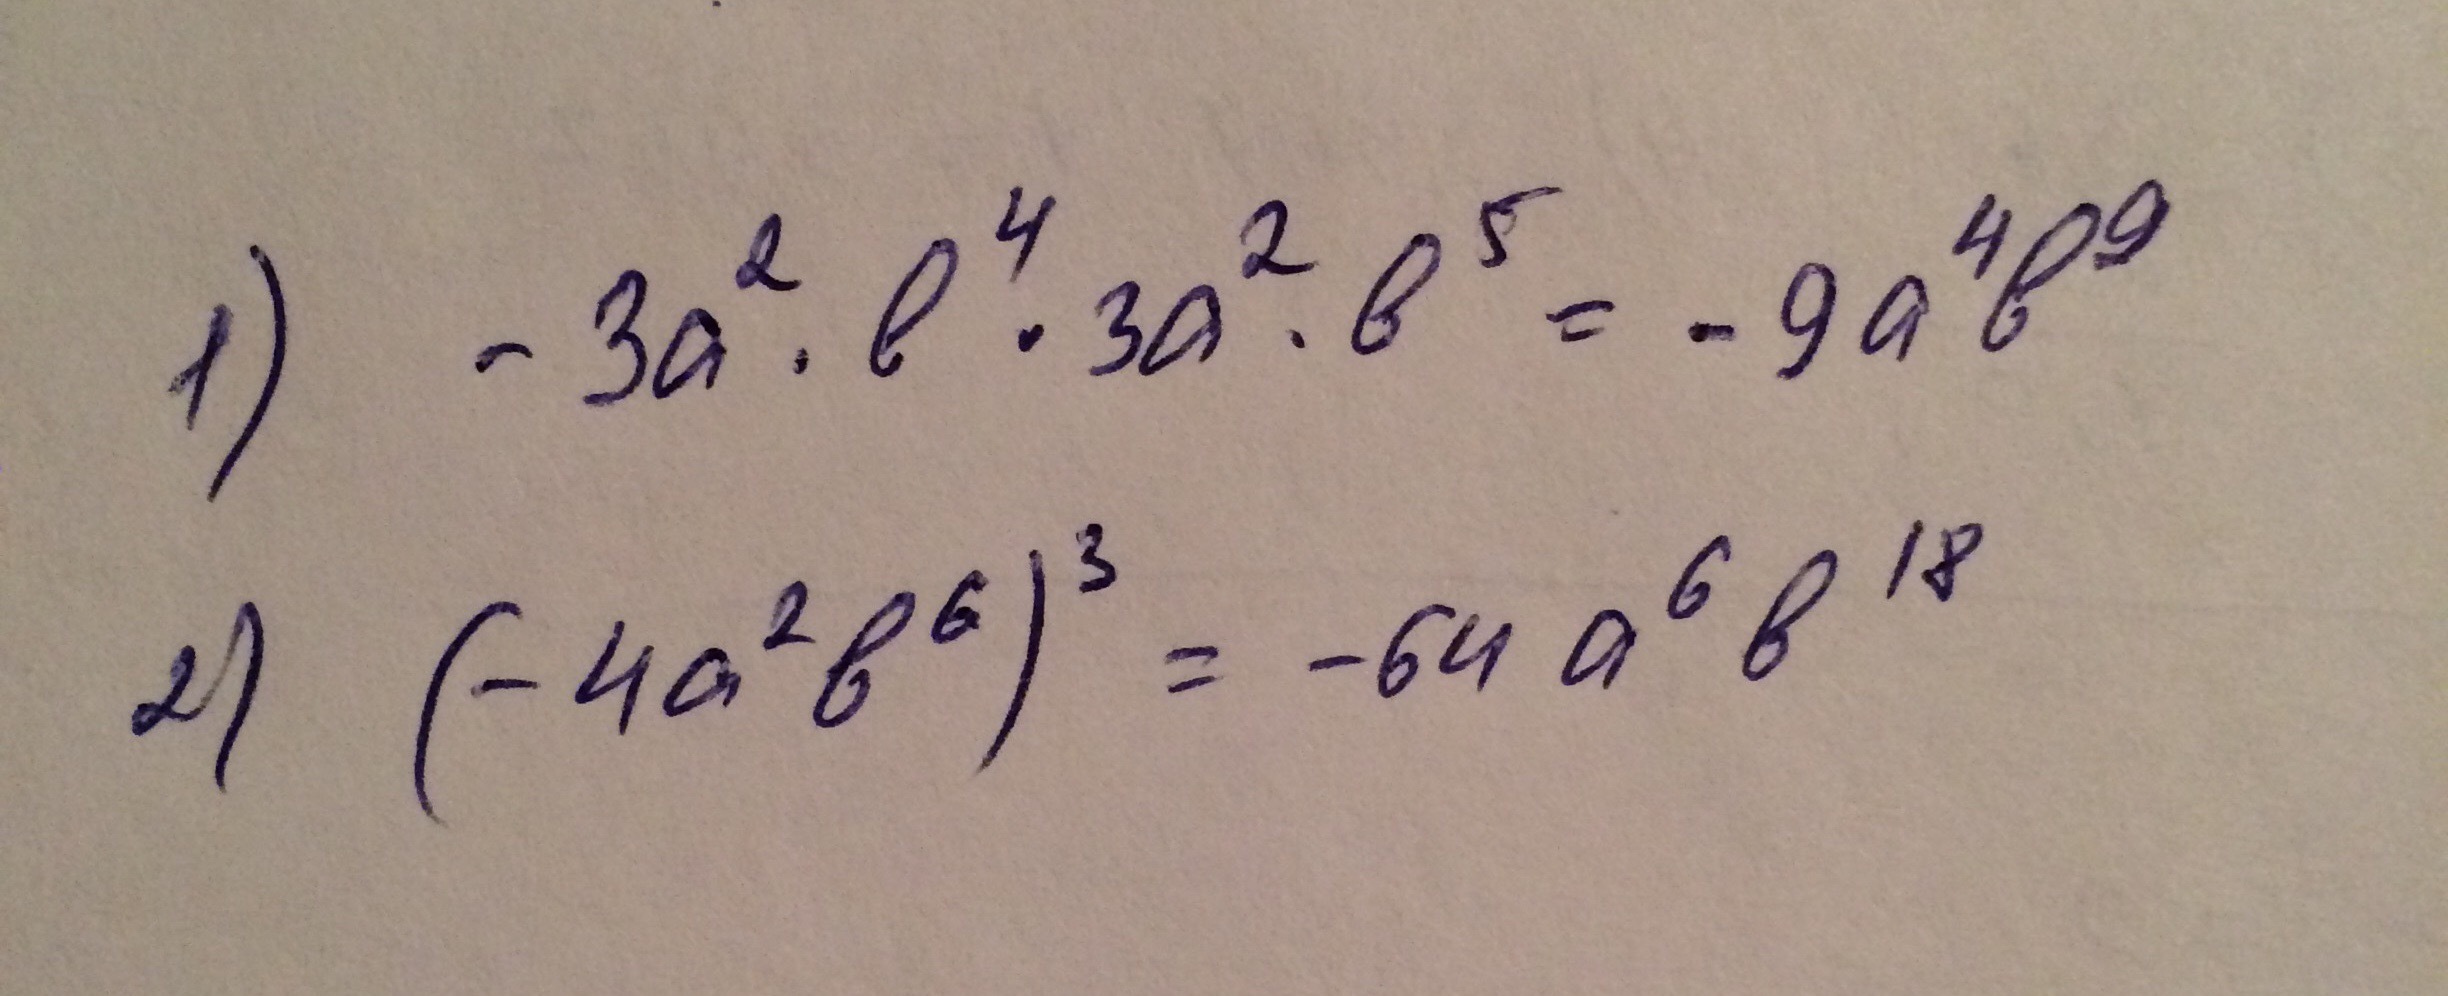 1) -3a²·b⁴·3a²·b⁵ = -9a⁴b⁹
2) (-4a²b⁶)³ = -64a⁶b¹⁸